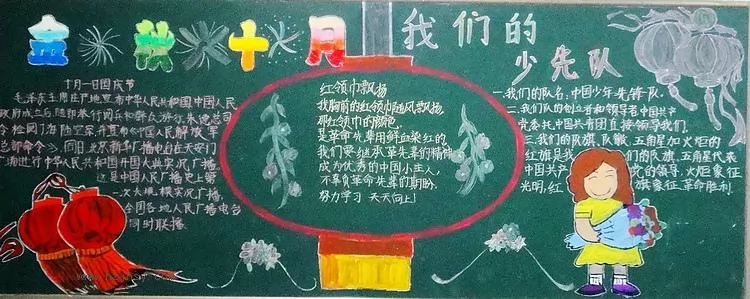 金秋十月
十月一日国庆节
毛泽东主席庄严地宣布中华人民共和国中国人民
政府成立后随即举行阅兵和群众游行。朱德总司
令检阅了海陆空军并宣布《中国人民解放军
总部命令》。同日北京新华广播电台在天安门
广场进行中华人民共和国开国大典实况广播。
这是中国人民广播史上第
一次大规模实况广播。
全国各地人民广播电台
同时联播。
红领巾飘扬
我胸前的红领巾随风飘扬,
那红领巾的颜色,
是革命先辈用鲜血染红的,
我们要继承先辈的精神
成为优秀的中国小主人,
不辜负革命先辈的期盼,
努力学习 天天向上!
我们的
少先队
一.我们的队名,中国少年先锋队。
二.我们队的创立者和领导者中国共产
党委托中国共青团直接领导我们。
三.我们的队旗、队徽,五角星加火炬的
红旗是我们的队旗,五角星代表
中国共产党的领导,火炬象征
光明,红旗象征革命胜利.